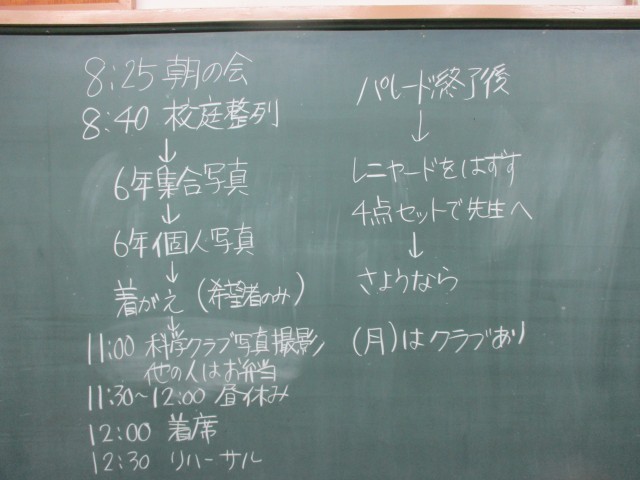 8:25 朝の会
8:40 校庭整列
↓
6年集合写真
↓
6年個人写真
↓
着がえ (希望者のみ)
↓
11:00 科学クラブ写真撮影
他の人はお弁当
11:30~12:00 昼休み
12:00 着席
12:30 リハーサル
パレード終了後
↓
レニヤードをはずす
4点セットで先生へ
↓
さようなら
(月)はクラブあり